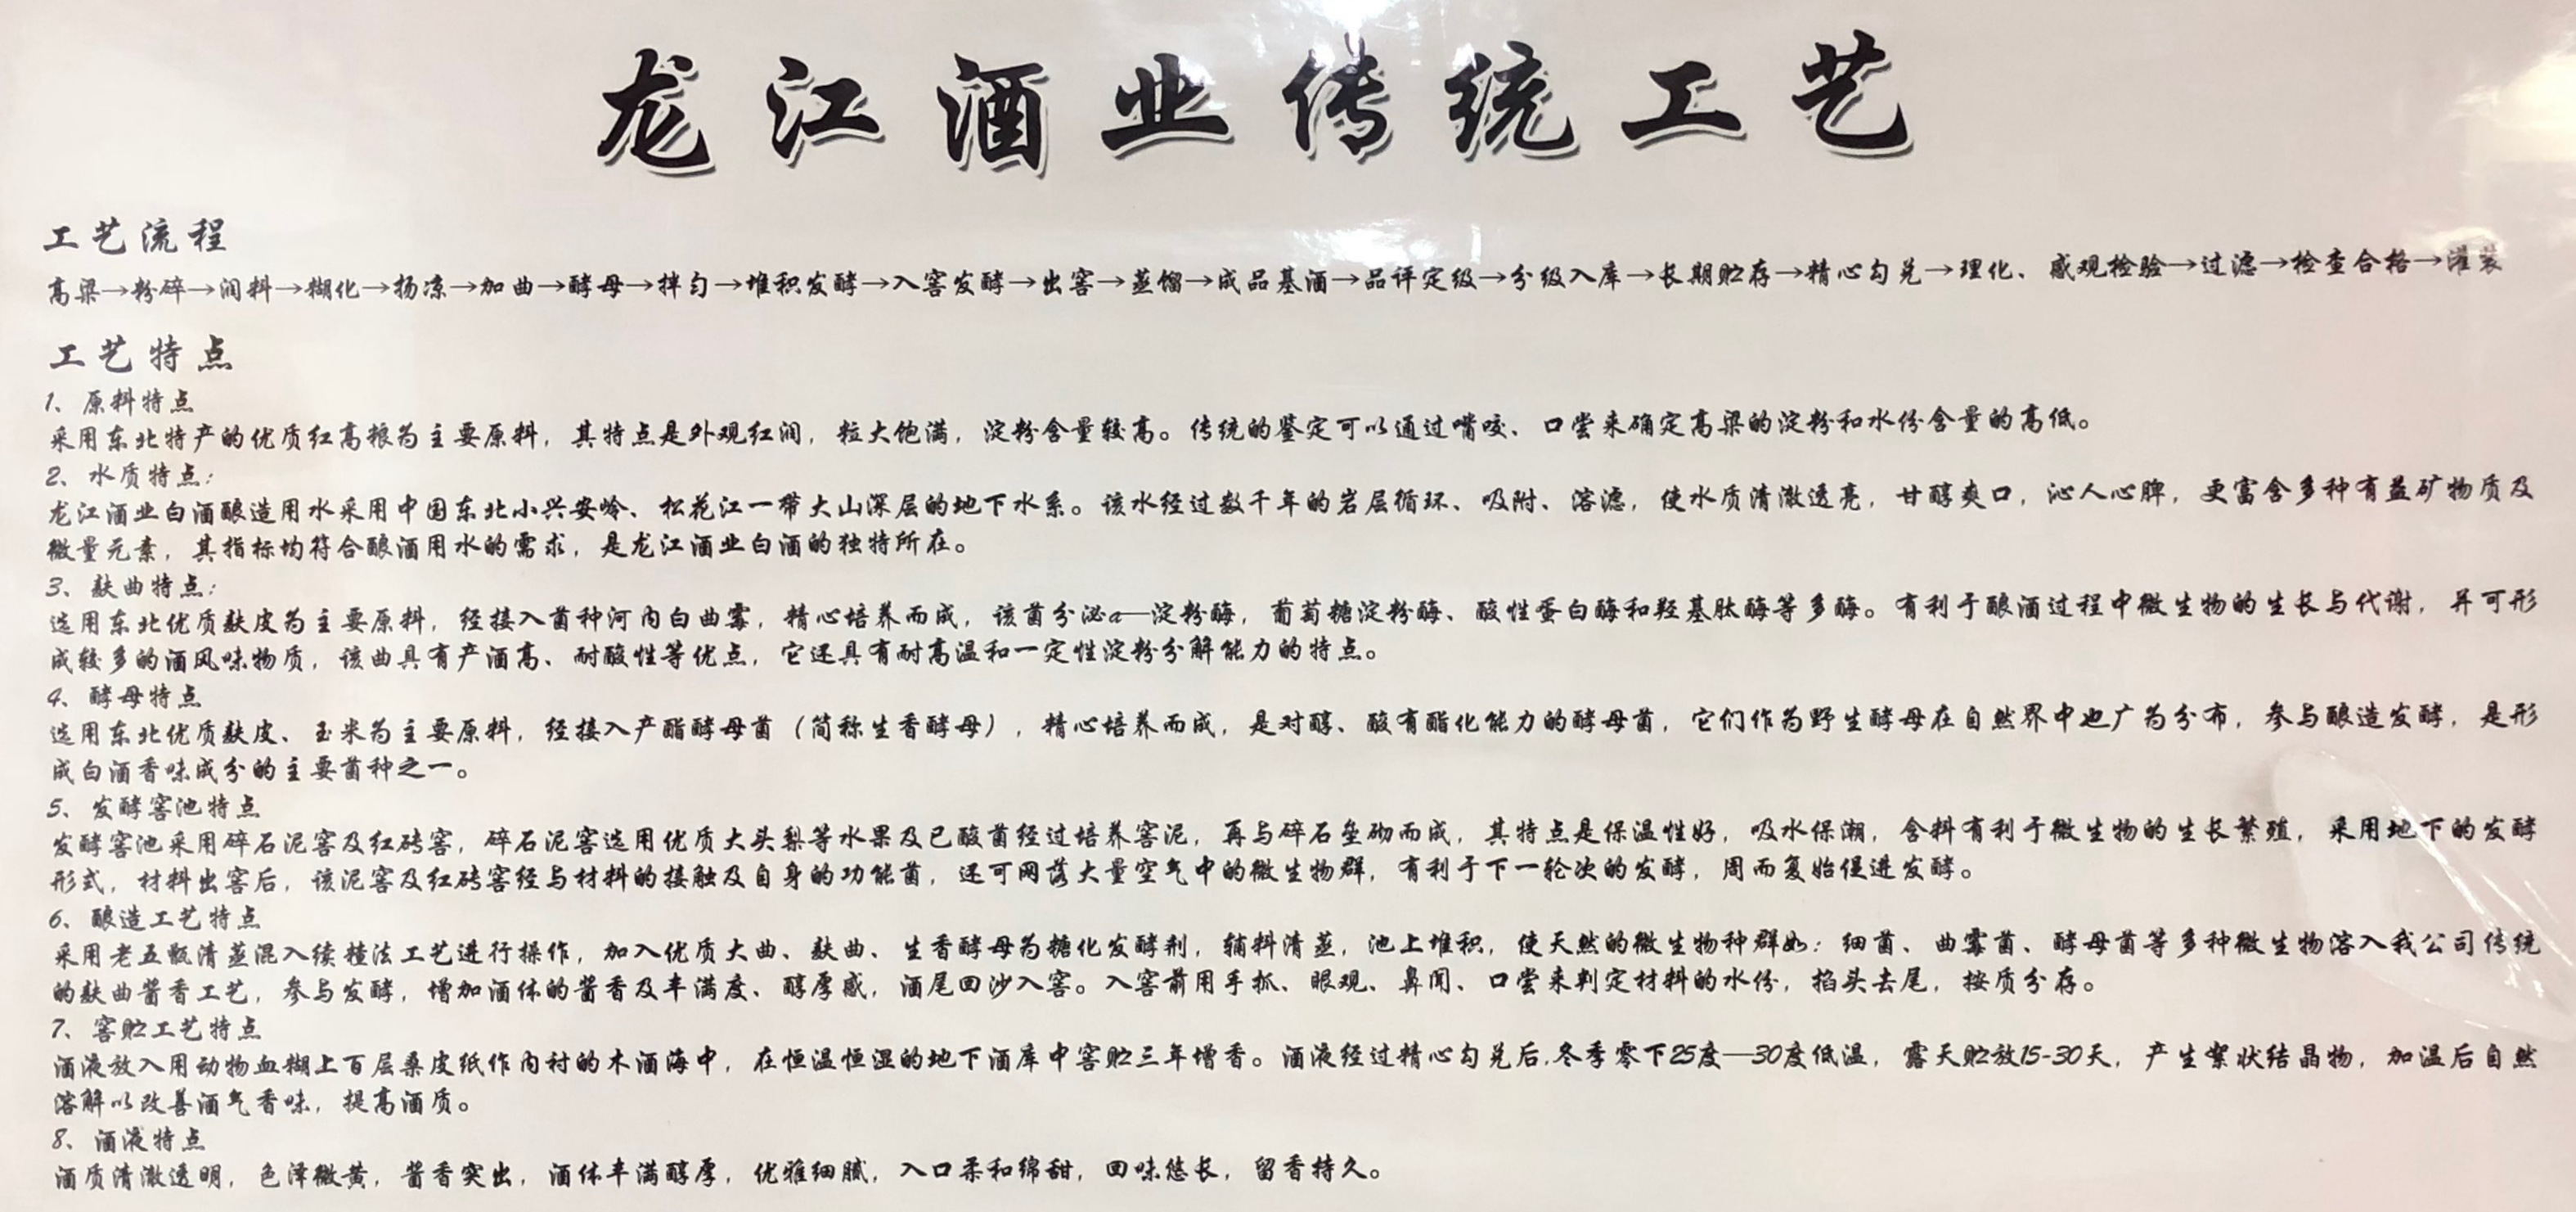 龙江酒业传统工艺
工艺流程
高梁→粉碎→润料→糊化→扬凉→加曲→酵母→拌匀→堆积发酵→入窖发酵→出窖→蒸馏→成品基酒→品评定级→分级入库→长期贮存→精心勾兑→理化、感观检验→过滤→检查合格→灌装
工艺特点
1、原料特点
采用东北特产的优质红高粮为主要原料，其特点是外观红润，粒大饱满，淀粉含量较高。传统的鉴定可以通过嘴咬、口尝来确定高梁的淀粉和水份含量的高低。
2、水质特点：
龙江酒业白酒酿造用水采用中国东北小兴安岭、松花江一带大山深层的地下水系。该水经过数千年的岩层循环、吸附、溶滤，使水质清澈透亮，甘醇爽口，沁人心脾，更富含多种有益矿物质及
微量元素，其指标均符合酿酒用水的需求，是龙江酒业白酒的独特所在。
3、麸曲特点：
选用东北优质麸皮为主要原料，经接入菌种河内白曲霉，精心培养而成，该菌分泌a—淀粉酶，葡萄糖淀粉酶、酸性蛋白酶和羟基肽酶等多酶。有利于酿酒过程中微生物的生长与代谢，并可形
成较多的酒风味物质，该曲具有产酒高、耐酸性等优点，它还具有耐高温和一定性淀粉分解能力的特点。
4、酵母特点
选用东北优质麸皮、玉米为主要原料，经接入产酯酵母菌（简称生香酵母），精心培养而成，是对醇、酸有酯化能力的酵母菌，它们作为野生酵母在自然界中也广为分布，参与酿造发酵，是形
成白酒香味成分的主要菌种之一。
5、发酵窖池特点
发酵窖池采用碎石泥窖及红砖窖，碎石泥窖选用优质大头梨等水果及已酸菌经过培养窖泥，再与碎石垒砌而成，其特点是保温性好，吸水保潮，含料有利于微生物的生长繁殖，采用地下的发酵
形式，材料出窖后，该泥窖及红砖窖经与材料的接触及自身的功能菌，还可网落大量空气中的微生物群，有利于下一轮次的发酵，周而复始促进发酵。
6、酿造工艺特点
采用老五甑清蒸混入续楂法工艺进行操作，加入优质大曲、麸曲、生香酵母为糖化发酵剂，辅料清蒸，池上堆积，使天然的微生物种群如：细菌、曲霉菌、酵母菌等多种微生物溶入我公司传统
的麸曲酱香工艺，参与发酵，增加酒体的酱香及丰满度、醇厚感，酒尾回沙入窖。入窖前用手抓、眼观、鼻闻、口尝来判定材料的水份，掐头去尾，按质分存。
7、窖贮工艺特点
酒液放入用动物血糊上百层桑皮纸作内衬的木酒海中，在恒温恒湿的地下酒库中窖贮三年增香。酒液经过精心勾兑后.冬季零下25度—30度低温，露天贮放15-30天，产生絮状结晶物，加温后自然
溶解以改善酒气香味，提高酒质。
8、酒液特点
酒质清澈透明，色泽微黄，酱香突出，酒体丰满醇厚，优雅细腻，入口柔和绵甜，回味悠长，留香持久。